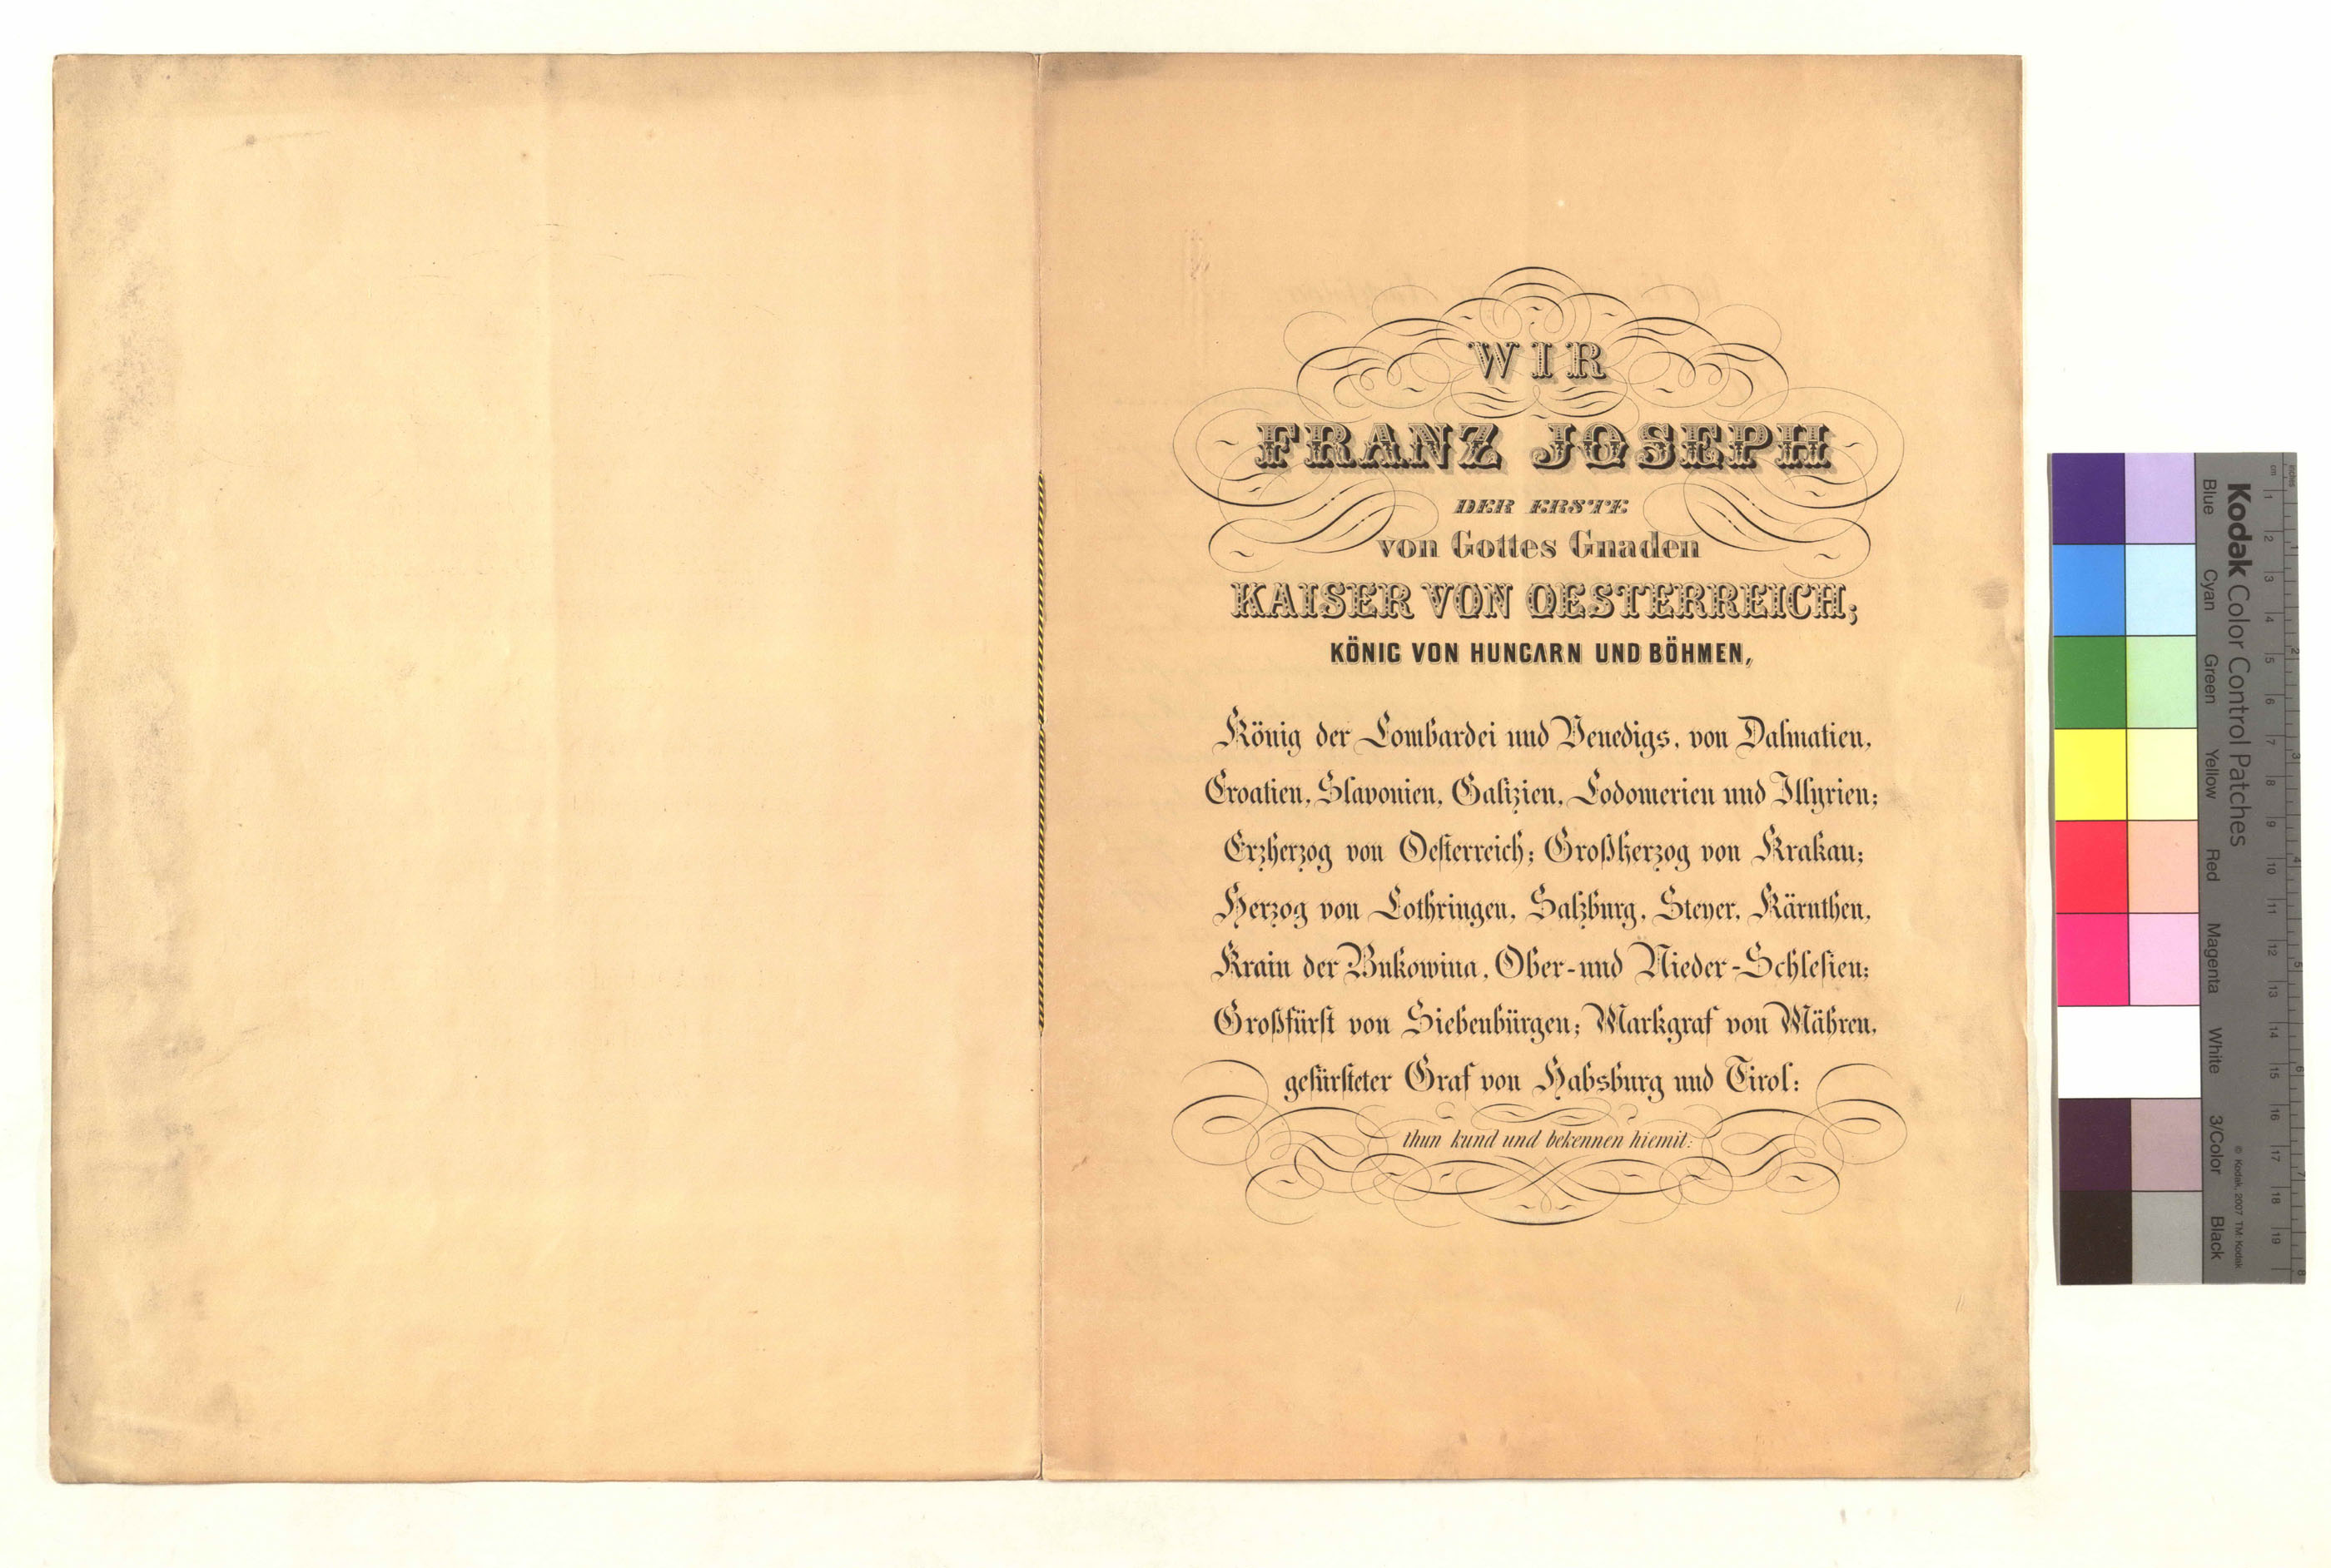 WIR
FRANZ JOSEPH
DER ERSTE
von Gottes Gnaden
KAISER VON OESTERREICH;
KÖNIG VON HUNGARN UND BÖHMEN,
König der Lombardei und Venedigs, von Dalmatien,
Croatien, Slavonien, Galizien, Lodomerien und Illyrien;
Erzherzog von Oesterreich; Großherzog von Krakau;
Herzog von Lothringen, Salzburg, Steyer, Kärnthen,
Krain der Bukowina, Ober-und Nieder-Schlesien;
Großfürst von Siebenbürgen; Markgraf von Mähren,
gefürsteter Graf von Habsburg und Tirol:
thun kund und bekennen hiemit:
Kodak Color Control Patches
Blue Cyan Green Yellow Red Magenta White 3/Color Black
© Kodak, 2007 TM: Kodak
cm 1 2 3 4 5 6 7 8 9 10 11 12 13 14 15 16 17 18 19
inches 1 2 3 4 5 6 7 8